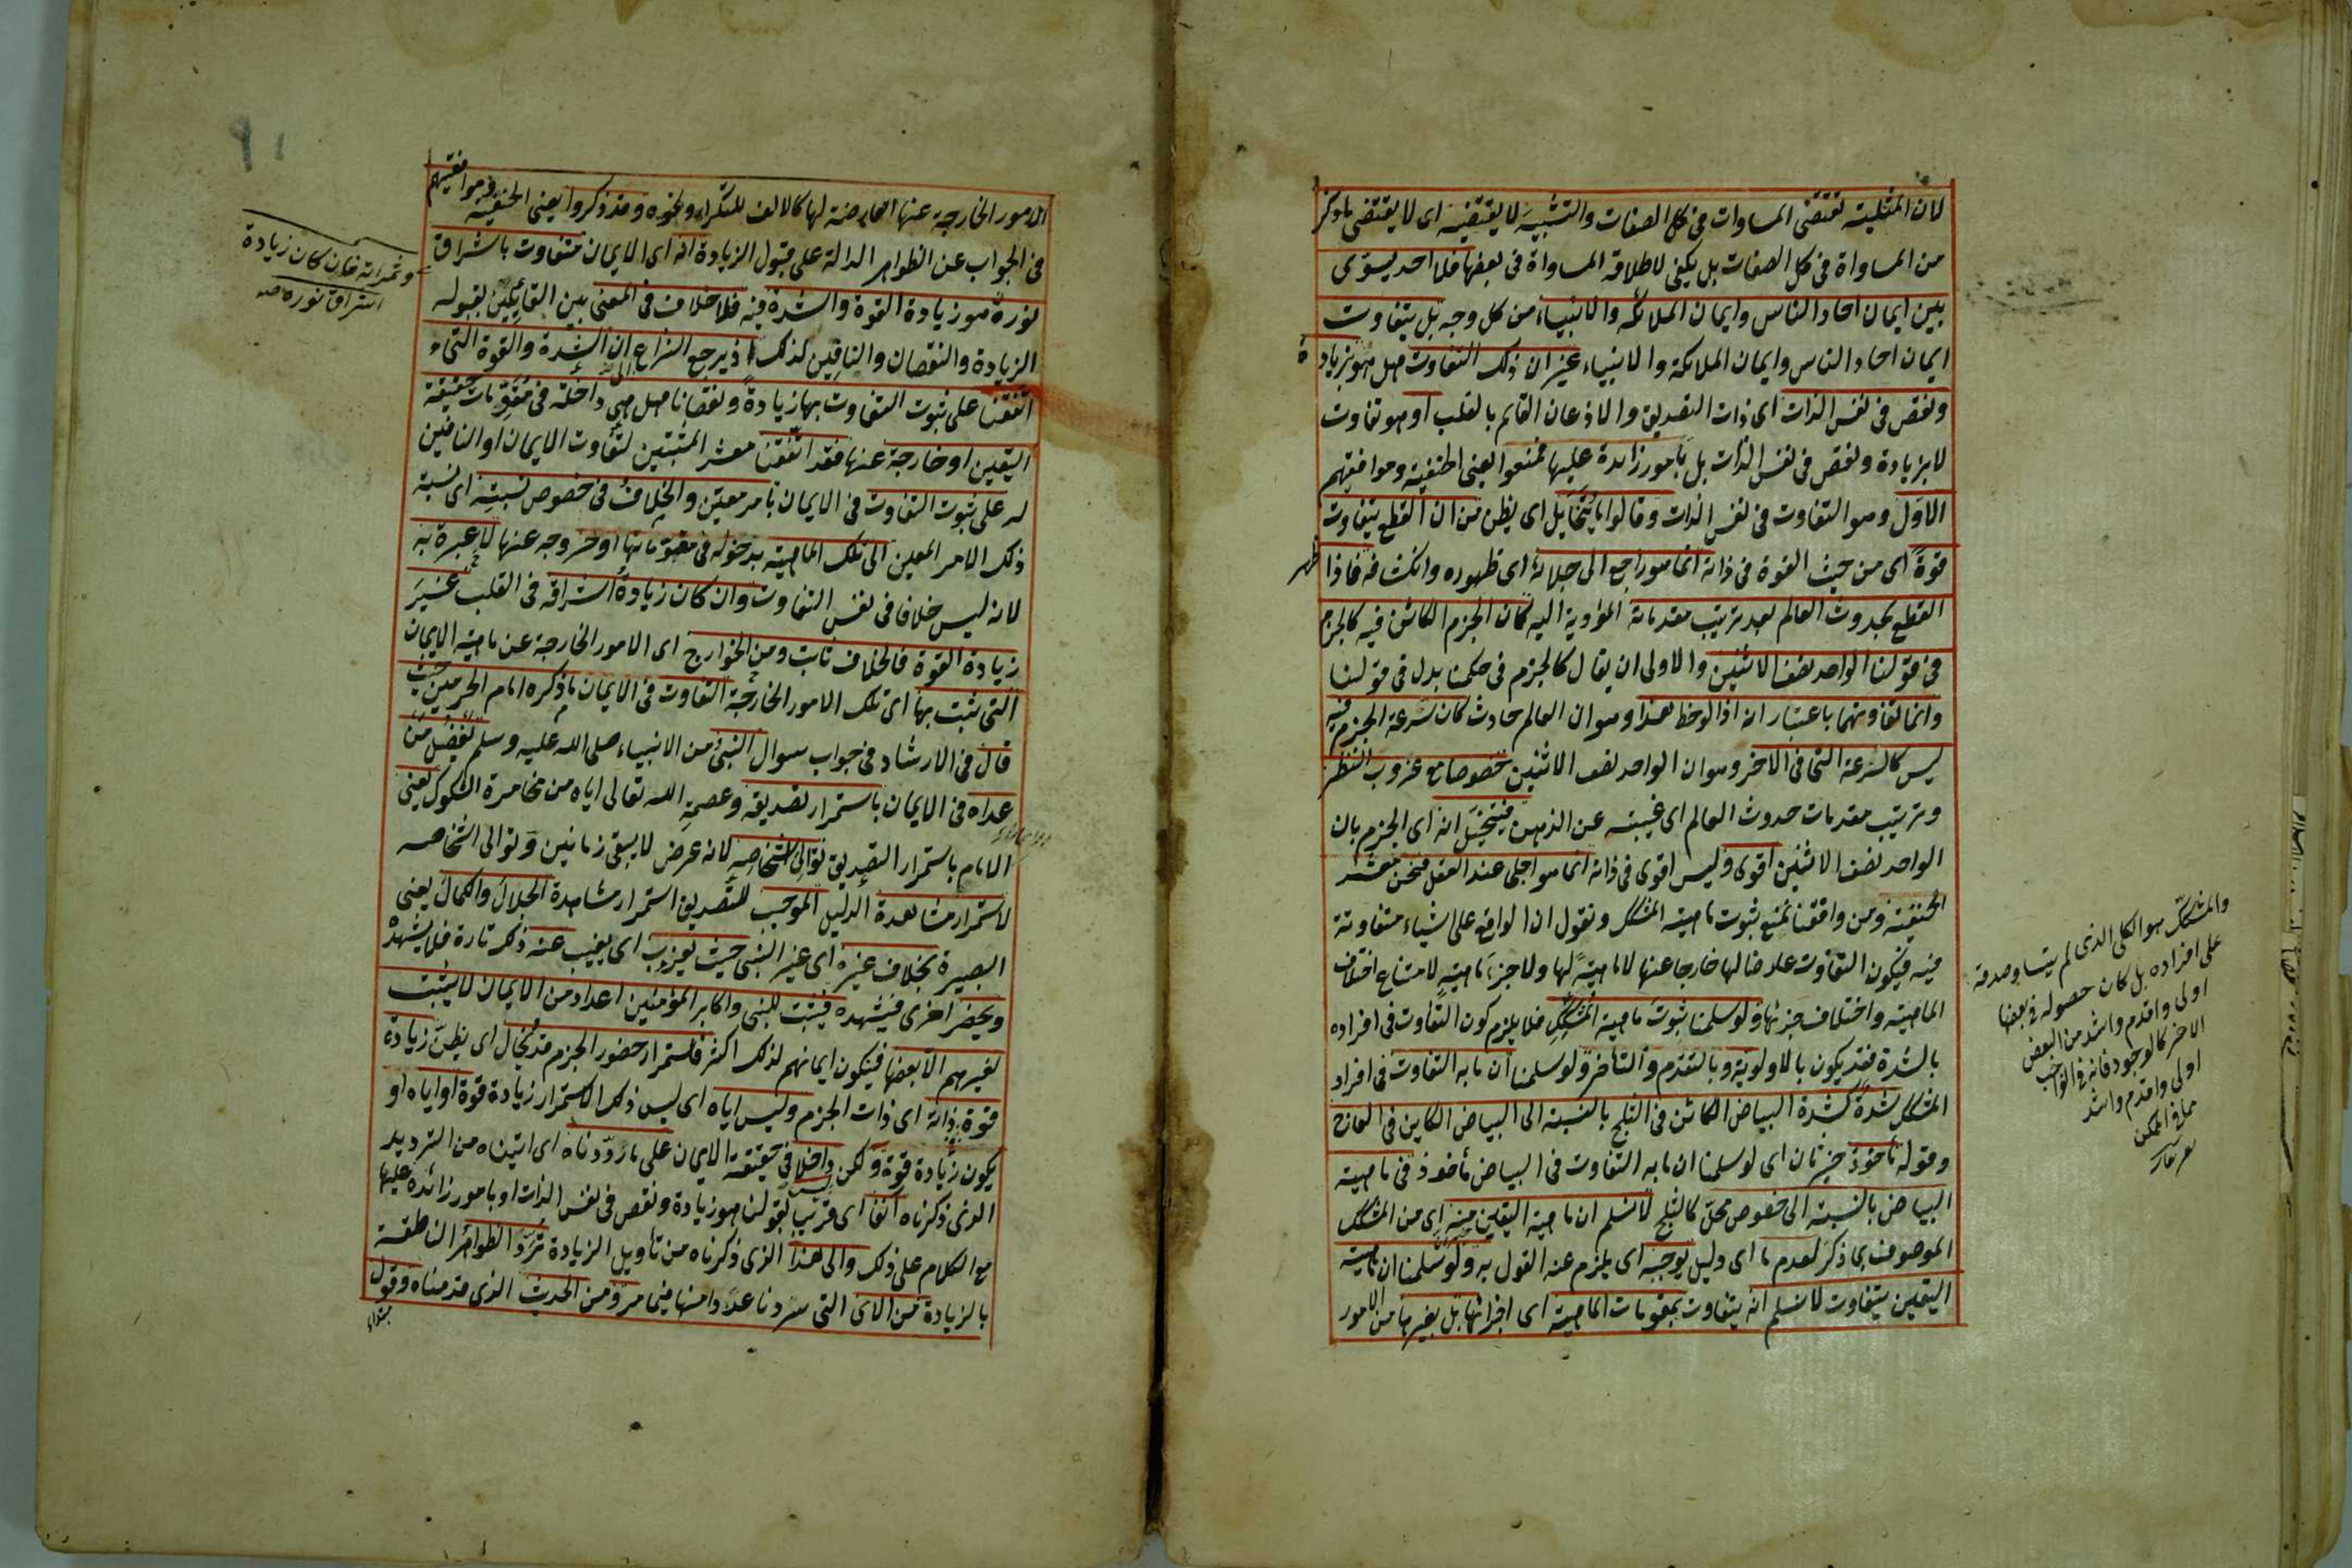 لان المثلية تقتضى المساوات فى كل الصفات والتشبيه لا يقتضيه اى لا يقتضى ما ذكر
من المساواة فى كل الصفات بل يكفى لاطلاقه المساواة فى بعضها فلا احد يسوى
بين ايمان احاد الناس وايمان الملائكة والانبياء من كل وجه بل يتفاوت
ايمان احاد الناس وايمان الملائكة والانبياء غير ان ذلك التفاوت هل هو بزيادة
ونقص فى نفس الذات اى ذات التصديق والاذعان القائم بالقلب او هو تفاوت
لا بزيادة ونقص فى نفس الذات بل بامور زائدة عليها فمنعوا يعنى الحنفية وموافقيهم
الاول وهو التفاوت فى نفس الذات وقالوا ما يتخايل اى يظن من ان القطع يتفاوت
قوة اى من حيث القوة فى ذاته انما هو راجع الى جلائه اى ظهوره وانكشافه فاذا ظهر
القطع بحدوث العالم بعد ترتيب مقدماته المؤدية اليه كان الجزم الكائن فيه كالجزم
فى قولنا الواحد نصف الاثنين والاولى ان يقال كالجزم فى حكمنا بدل فى قولنا
وانما تفاوتهما باعتبار انه اذا لوحظ هذا وهو ان العالم حادث كان سرعة الجزم فيه
ليس كالسرعة التى فى الاخر وهو ان الواحد نصف الاثنين خصوصا مع عزوب النظر
وترتيب مقدمات حدوث العالم اى غيبته عن الذهن فيتخيل انه اى الجزم بان
الواحد نصف الاثنين اقوى وليس اقوى فى ذاته انما هو اجلى عند العقل فنحن معشر
الحنفية ومن وافقنا نمنع ثبوت ماهية المشكك ونقول ان الواقع على اشياء متفاوتة
فيه فيكون التفاوت عارضا لها خارجا عنها لا ماهية لها ولا جزء ماهية لامتناع اختلاف
الماهية واختلاف جزئها ولو سلمنا ثبوت ماهية المشكك فلا يلزم كون التفاوت فى افراده
بالشدة فقد يكون بالاولوية وبالتقدم والتأخر ولو سلمنا ان ما به التفاوت فى افراد
المشكك شدة كشدة البياض الكائن فى الثلج بالنسبة الى البياض الكاين فى العاج
وقوله مأخوذ خبر ثان اى لو سلمنا ان ما به التفاوت فى البياض مأخوذ فى ماهية
البياض بالنسبة الى خصوص محل كالثلج لا نسلم ان ماهية اليقين منه اى من المشكك
الموصوف بما ذكر لعدم ما اى دليل يوجبه اى يلزم عنه القول به ولو سلمنا ان ماهية
اليقين يتفاوت لا نسلم انه يتفاوت بمقومات الماهية اى اجزائها بل بغيرها من الامور
والمشكك هو الكلى الذى لم يتساو صدقه
على افراده بل كان حصوله فى بعضها
اولى واقدم واشد من البعض
الاخر كالوجود فانه فى الواجب
اولى واقدم واشد
مما فى الممكن
الامور الخارجة عنها العارضة لها كالالف للتكرار ونحوه وقد ذكروا يعنى الحنفية وموافقيهم
فى الجواب عن الظواهر الدالة على قبول الزيادة انه اى الايمان متفاوت باشراق
نوره هو زيادة القوة والشدة فيه فلا خلاف فى المعنى بين القائلين بقبوله
الزيادة والنقصان والنافين لذلك اذ يرجع النزاع الى ان الشدة والقوة التى
اتفقنا على ثبوت التفاوت بها زيادة ونقصانا هل هى داخلة فى مقومات حقيقة
اليقين او خارجة عنها فقد اتفقنا معشر المثبتين لتفاوت الايمان او النافين
له على ثبوت التفاوت فى الايمان بامر معين والخلاف فى خصوص نسبته اى نسبة
ذلك الامر المعين الى تلك الماهية بدخوله فى مقوماتها او خروجه عنها لا عبرة به
لانه ليس خلافا فى نفس التفاوت وان كان زيادة اشراقه فى القلب غير
زيادة القوة فالخلاف ثابت ومن الخوارج اى الامور الخارجة عن ماهية الايمان
التى ثبت بها اى تلك الامور الخارجة التفاوت فى الايمان ما ذكره امام الحرمين حيث
قال فى الارشاد فى جواب سوال النبى من الانبياء صلى الله عليه وسلم يفضل من
عداه فى الايمان باستمرار تصديقه وعصمة الله تعالى اياه من مخامرة الشكوك يعنى
الامام باستمرار التصديق توالى اشخاصه لانه عرض لا يبقى زمانين وتوالى اشخاصه
لاستمرار مشاهدة الدليل الموجب للتصديق استمرار مشاهدة الجلال والكمال يعنى
البصيرة بخلاف غيره اى غير النبى حيث يعزب اى يغيب عنه ذكر تارة فلا يشهده
ويحضر اخرى فيشهده فيثبت للنبى واكابر المؤمنين اعداد من الايمان لا يثبت
لغيرهم الا بعضها فيكون ايمانهم لذلك اكثر فاستمرار حضور الجزم قد يخال اى يظن زيادة
قوة ذاته اى ذات الجزم وليس اياه اى ليس ذلك الاستمرار زيادة قوة او اياه او
يكون زيادة قوة ولكن ليس داخلا فى حقيقة الايمان على ما رددناه اى اتيناه من الترديد
الذى ذكرناه آنفا اى قريبا بقولنا هو زيادة ونقص فى نفس الذات او بامور زائدة عليها
مع الكلام على ذلك والى هذا الذى ذكرناه من تاويل الزيادة ترد الظواهر الناطقة
بالزيادة من الاى التى سردنا عددا منها فيما مر ومن الحديث الذى قدمناه وقول
وثمراته فان كان زيادة
اشراق نوره صح